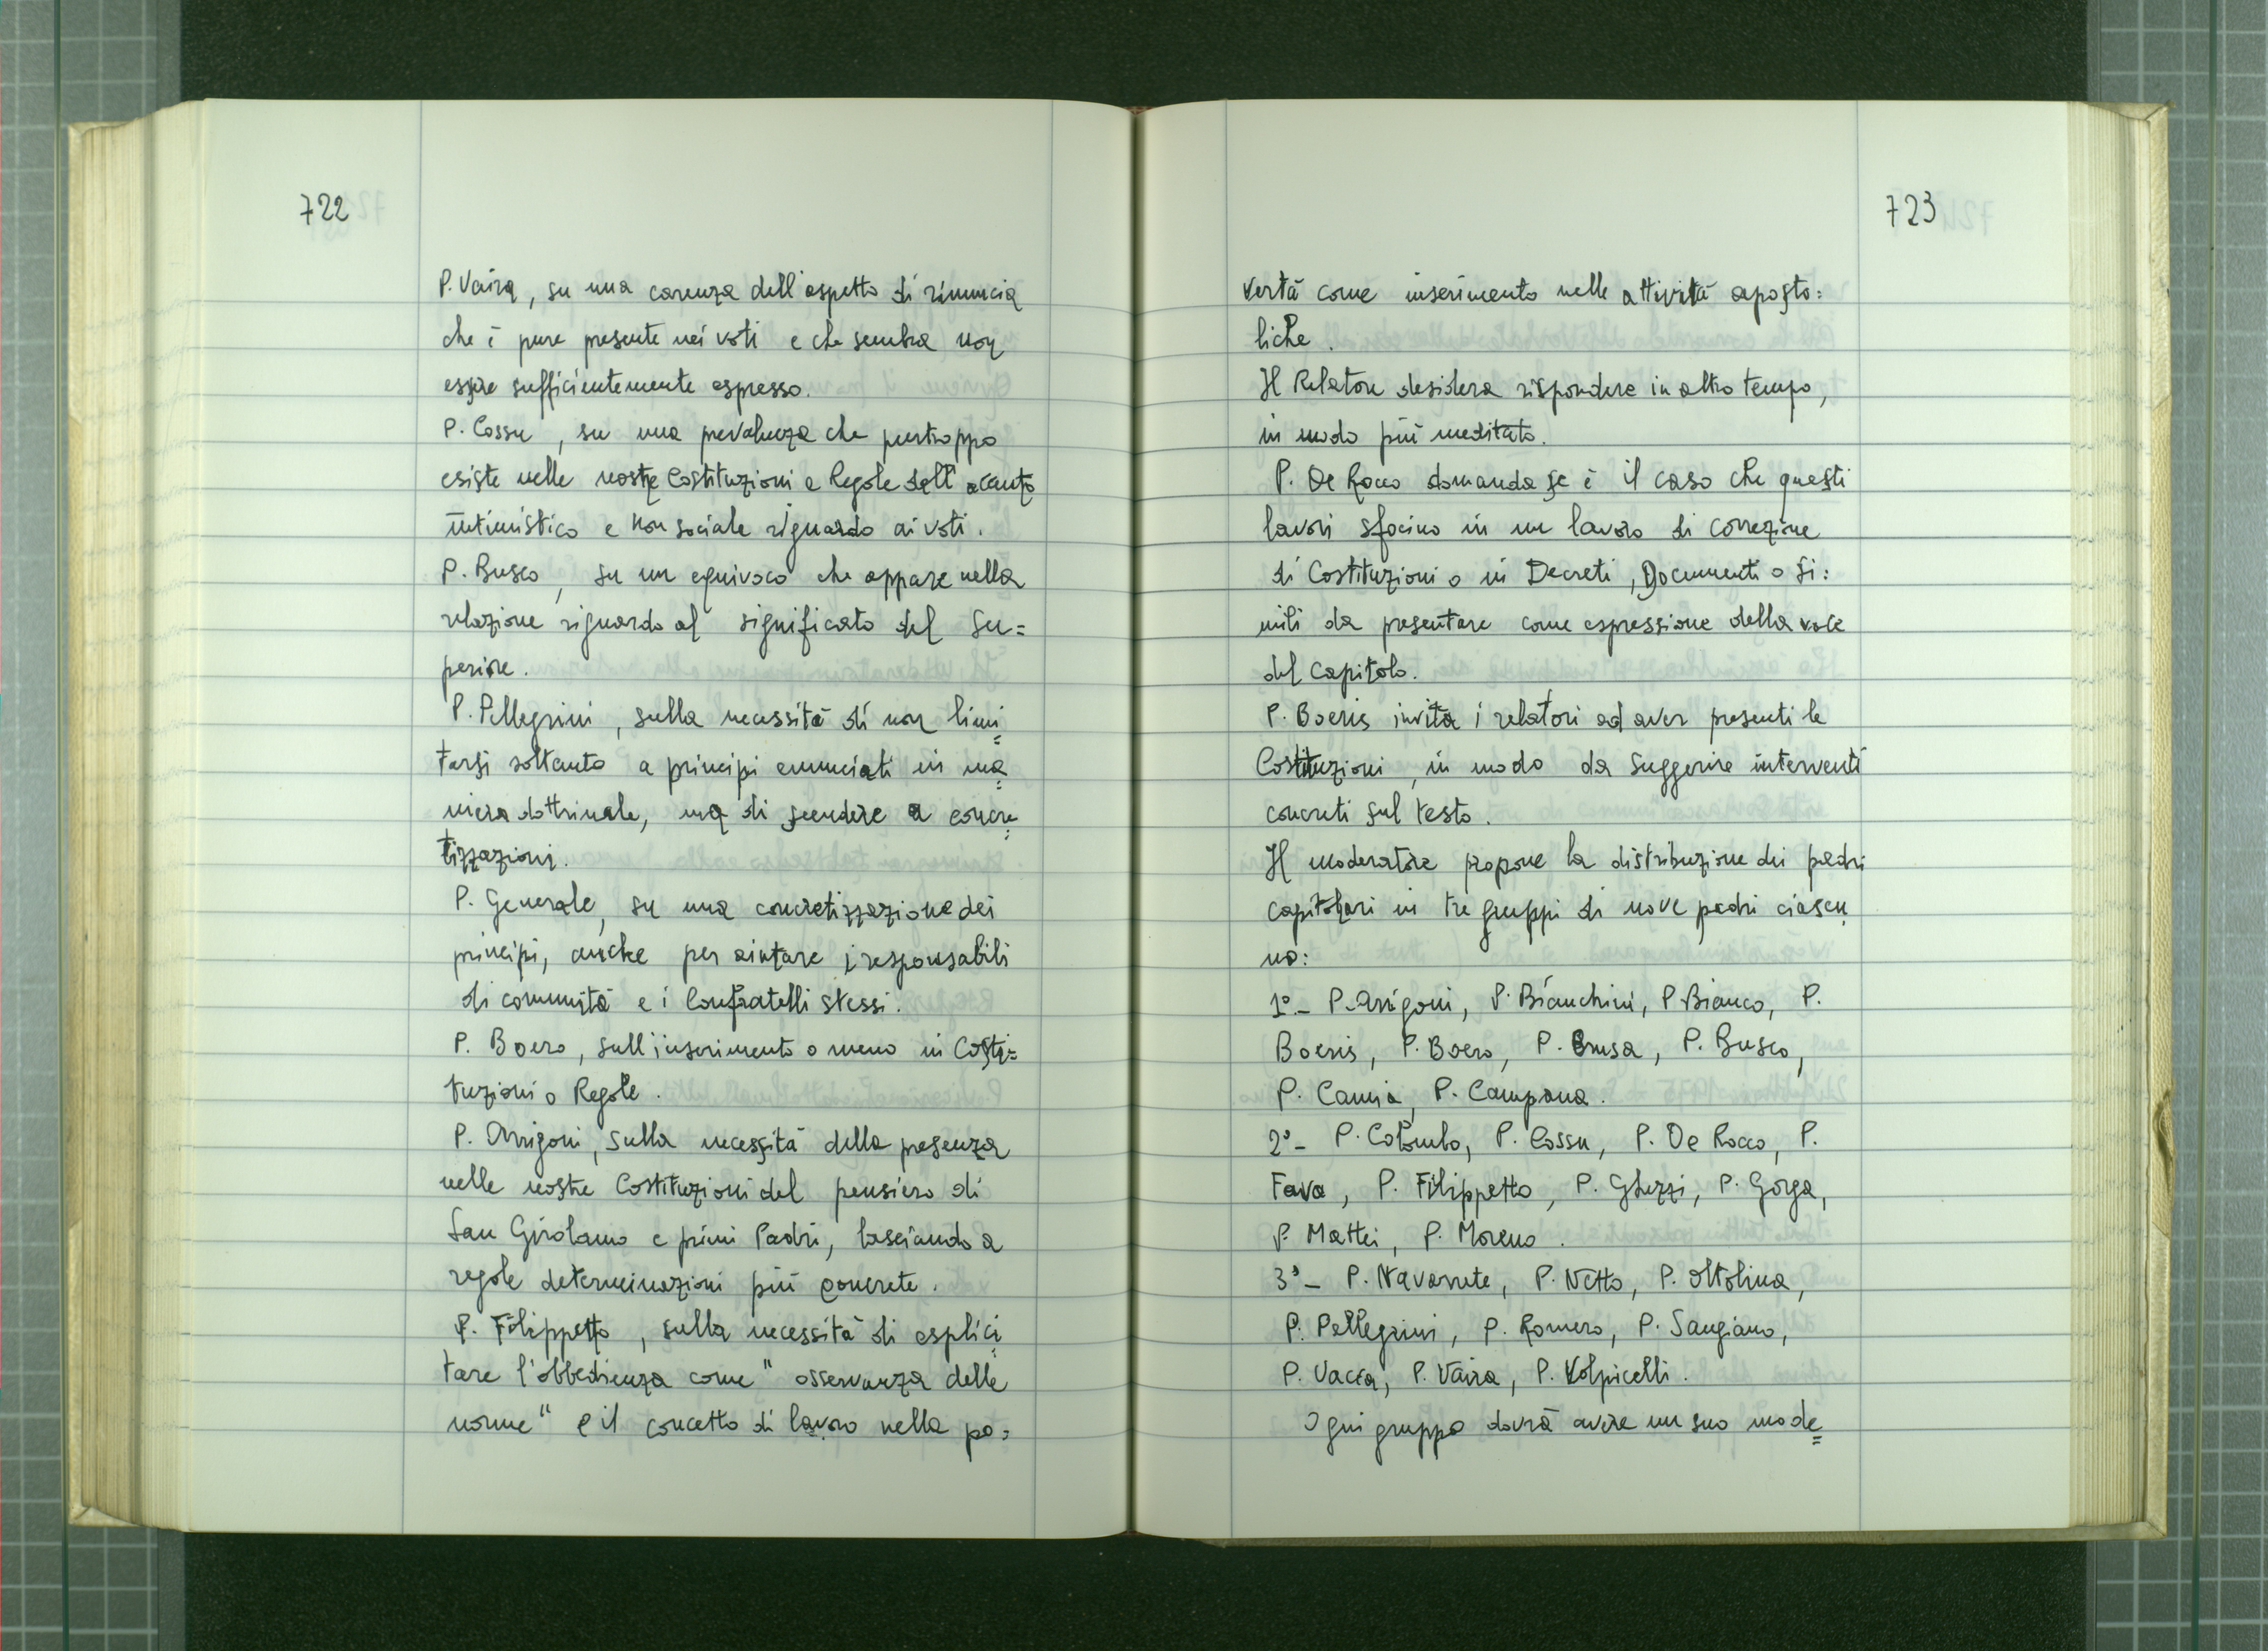 722
P. Vaira, su una carenza dell'aspetto di rinuncia
che è pure presente nei voti e che sembra non
essere sufficientemente espresso.
P. Cossu, su una prevalenza che purtroppo
esiste nelle nostre Costituzioni e Regole dell'accento
intimistico e non sociale riguardo ai voti.
P. Busco, su un equivoco che appare nella
relazione riguardo al significato del Su=
periore.
P. Pellegrini, sulla necessità di non limi=
tarsi soltanto a principi enunciati in ma=
niera dottrinale, ma di scendere a concre=
tizzazioni.
P. Generale, su una concretizzazione dei
principi, anche per aiutare i responsabili
di comunità e i Confratelli stessi.
P. Boero, sull'inserimento o meno in Costi=
tuzioni o Regole.
P. Arrigoni, sulla necessità della presenza
nelle nostre Costituzioni del pensiero di
San Girolamo e primi Padri, lasciando a
regole determinazioni più concrete.
P. Filippetto, sulla necessità di esplici=
tare l'obbedienza come "osservanza delle
norme" e il concetto di lavoro nella po=
723
vertà come inserimento nelle attività aposto=
liche.
Il Relatore desidera rispondere in altro tempo,
in modo più meditato.
P. De Rocco domanda se è il caso che questi
lavori sfocino in un lavoro di correzione
di Costituzioni o in Decreti, Documenti o si=
mili da presentare come espressione della voce
del Capitolo.
P. Boeris invita i relatori ad aver presenti le
Costituzioni, in modo da suggerire interventi
concreti sul testo.
Il moderatore propone la distribuzione dei padri
capitolari in tre gruppi di nove padri ciascu=
no:
1° - P. Arrigoni, P. Bianchini, P. Bianco, P.
Boeris, P. Boero, P. Brusa, P. Busco,
P. Camia, P. Campana.
2° - P. Colombo, P. Cossu, P. De Rocco, P.
Fava, P. Filippetto, P. Ghezzi, P. Gorga,
P. Mattei, P. Moreno.
3° - P. Navarrete, P. Netto, P. Oltolina,
P. Pellegrini, P. Romero, P. Sangiano,
P. Vacca, P. Vaira, P. Volpicelli.
Ogni gruppo dovrà avere un suo mode=